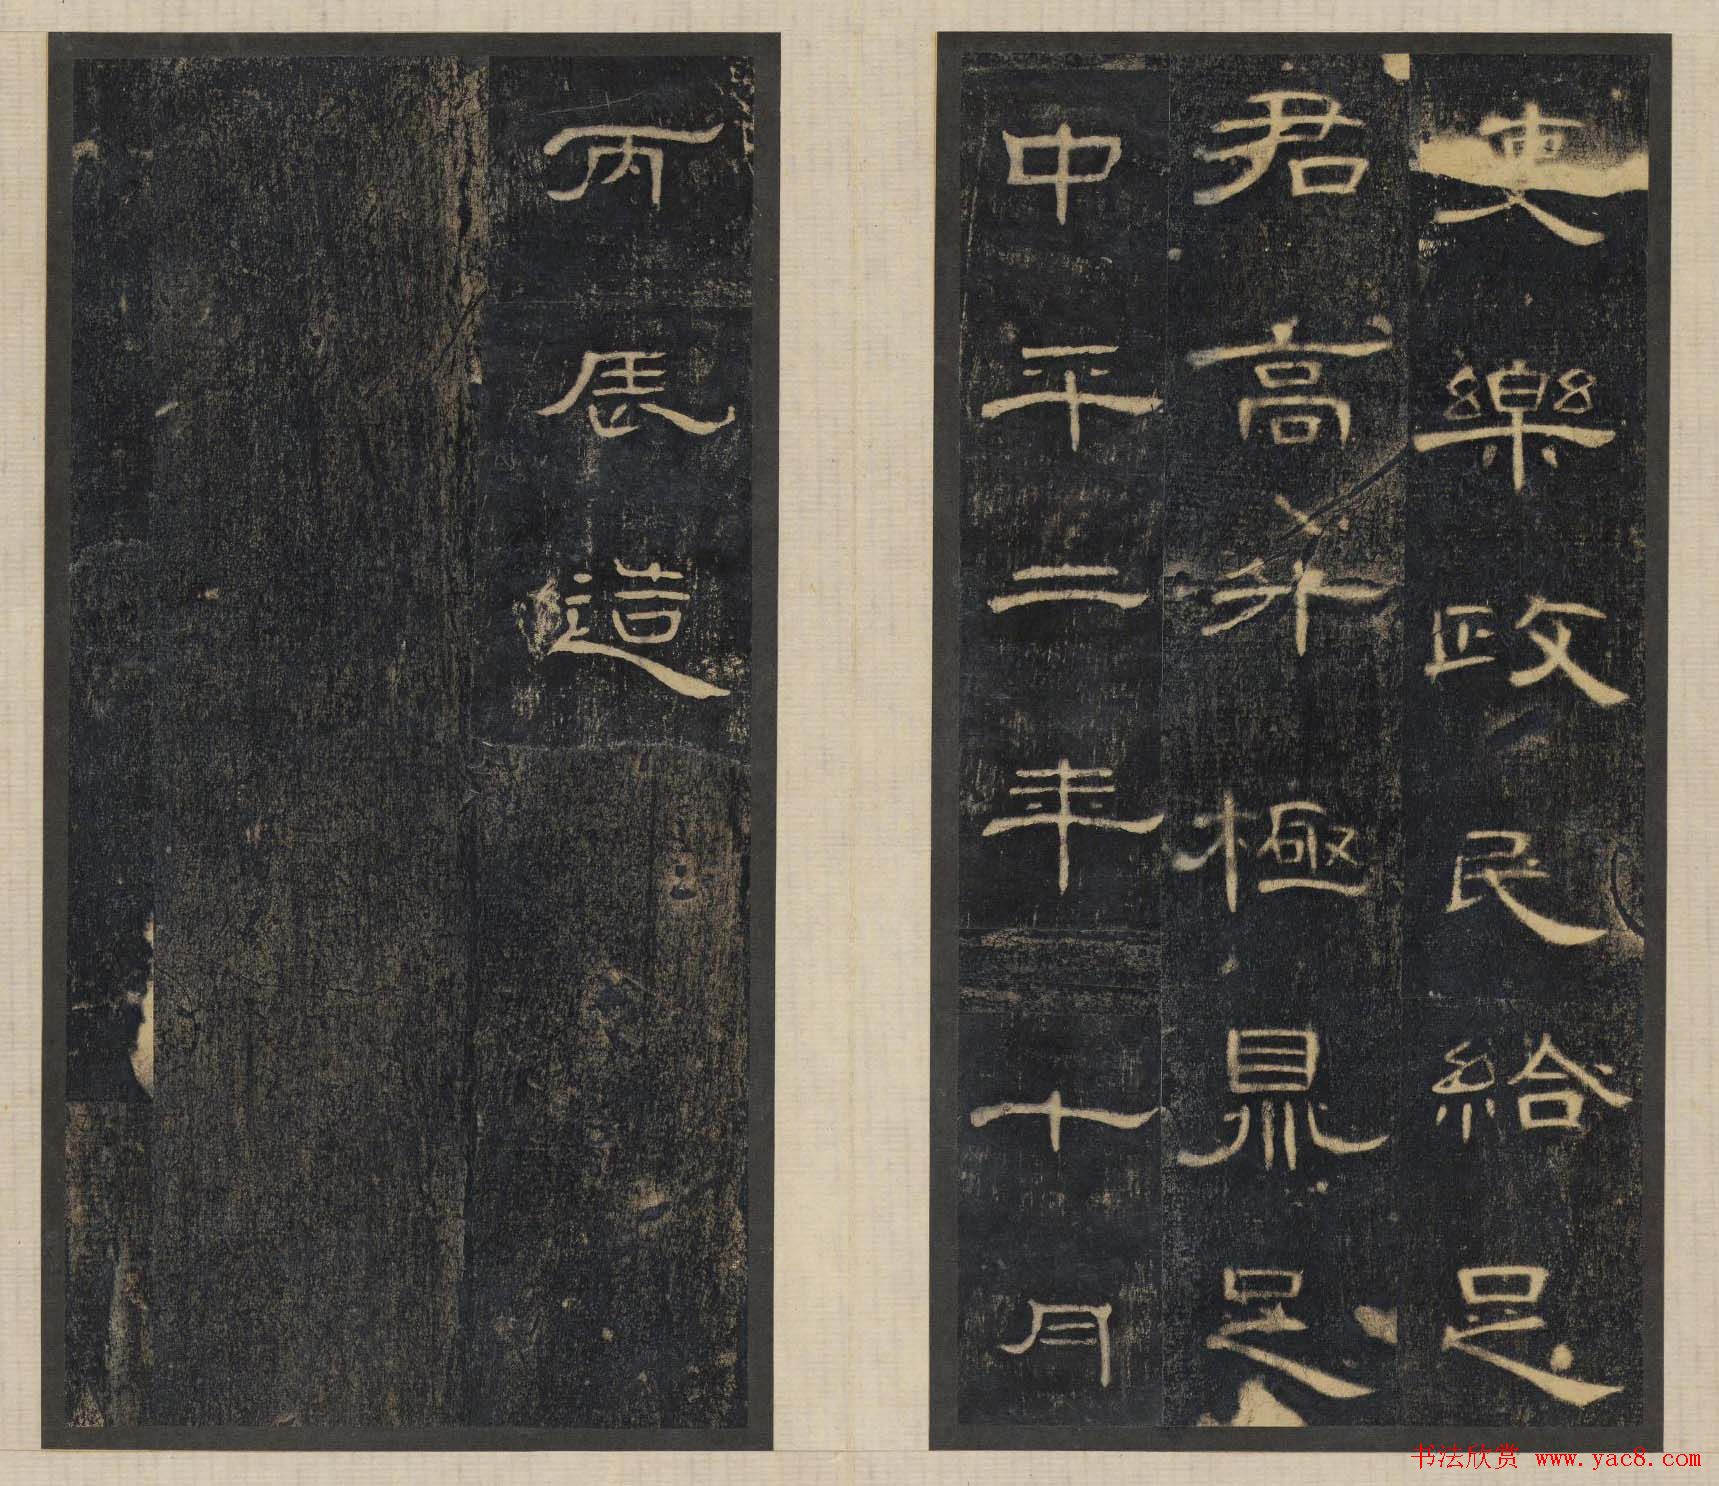 吏樂政民給足
君高升極鼎足
中平二年十月
丙辰造
书法欣赏 www.yac8.com